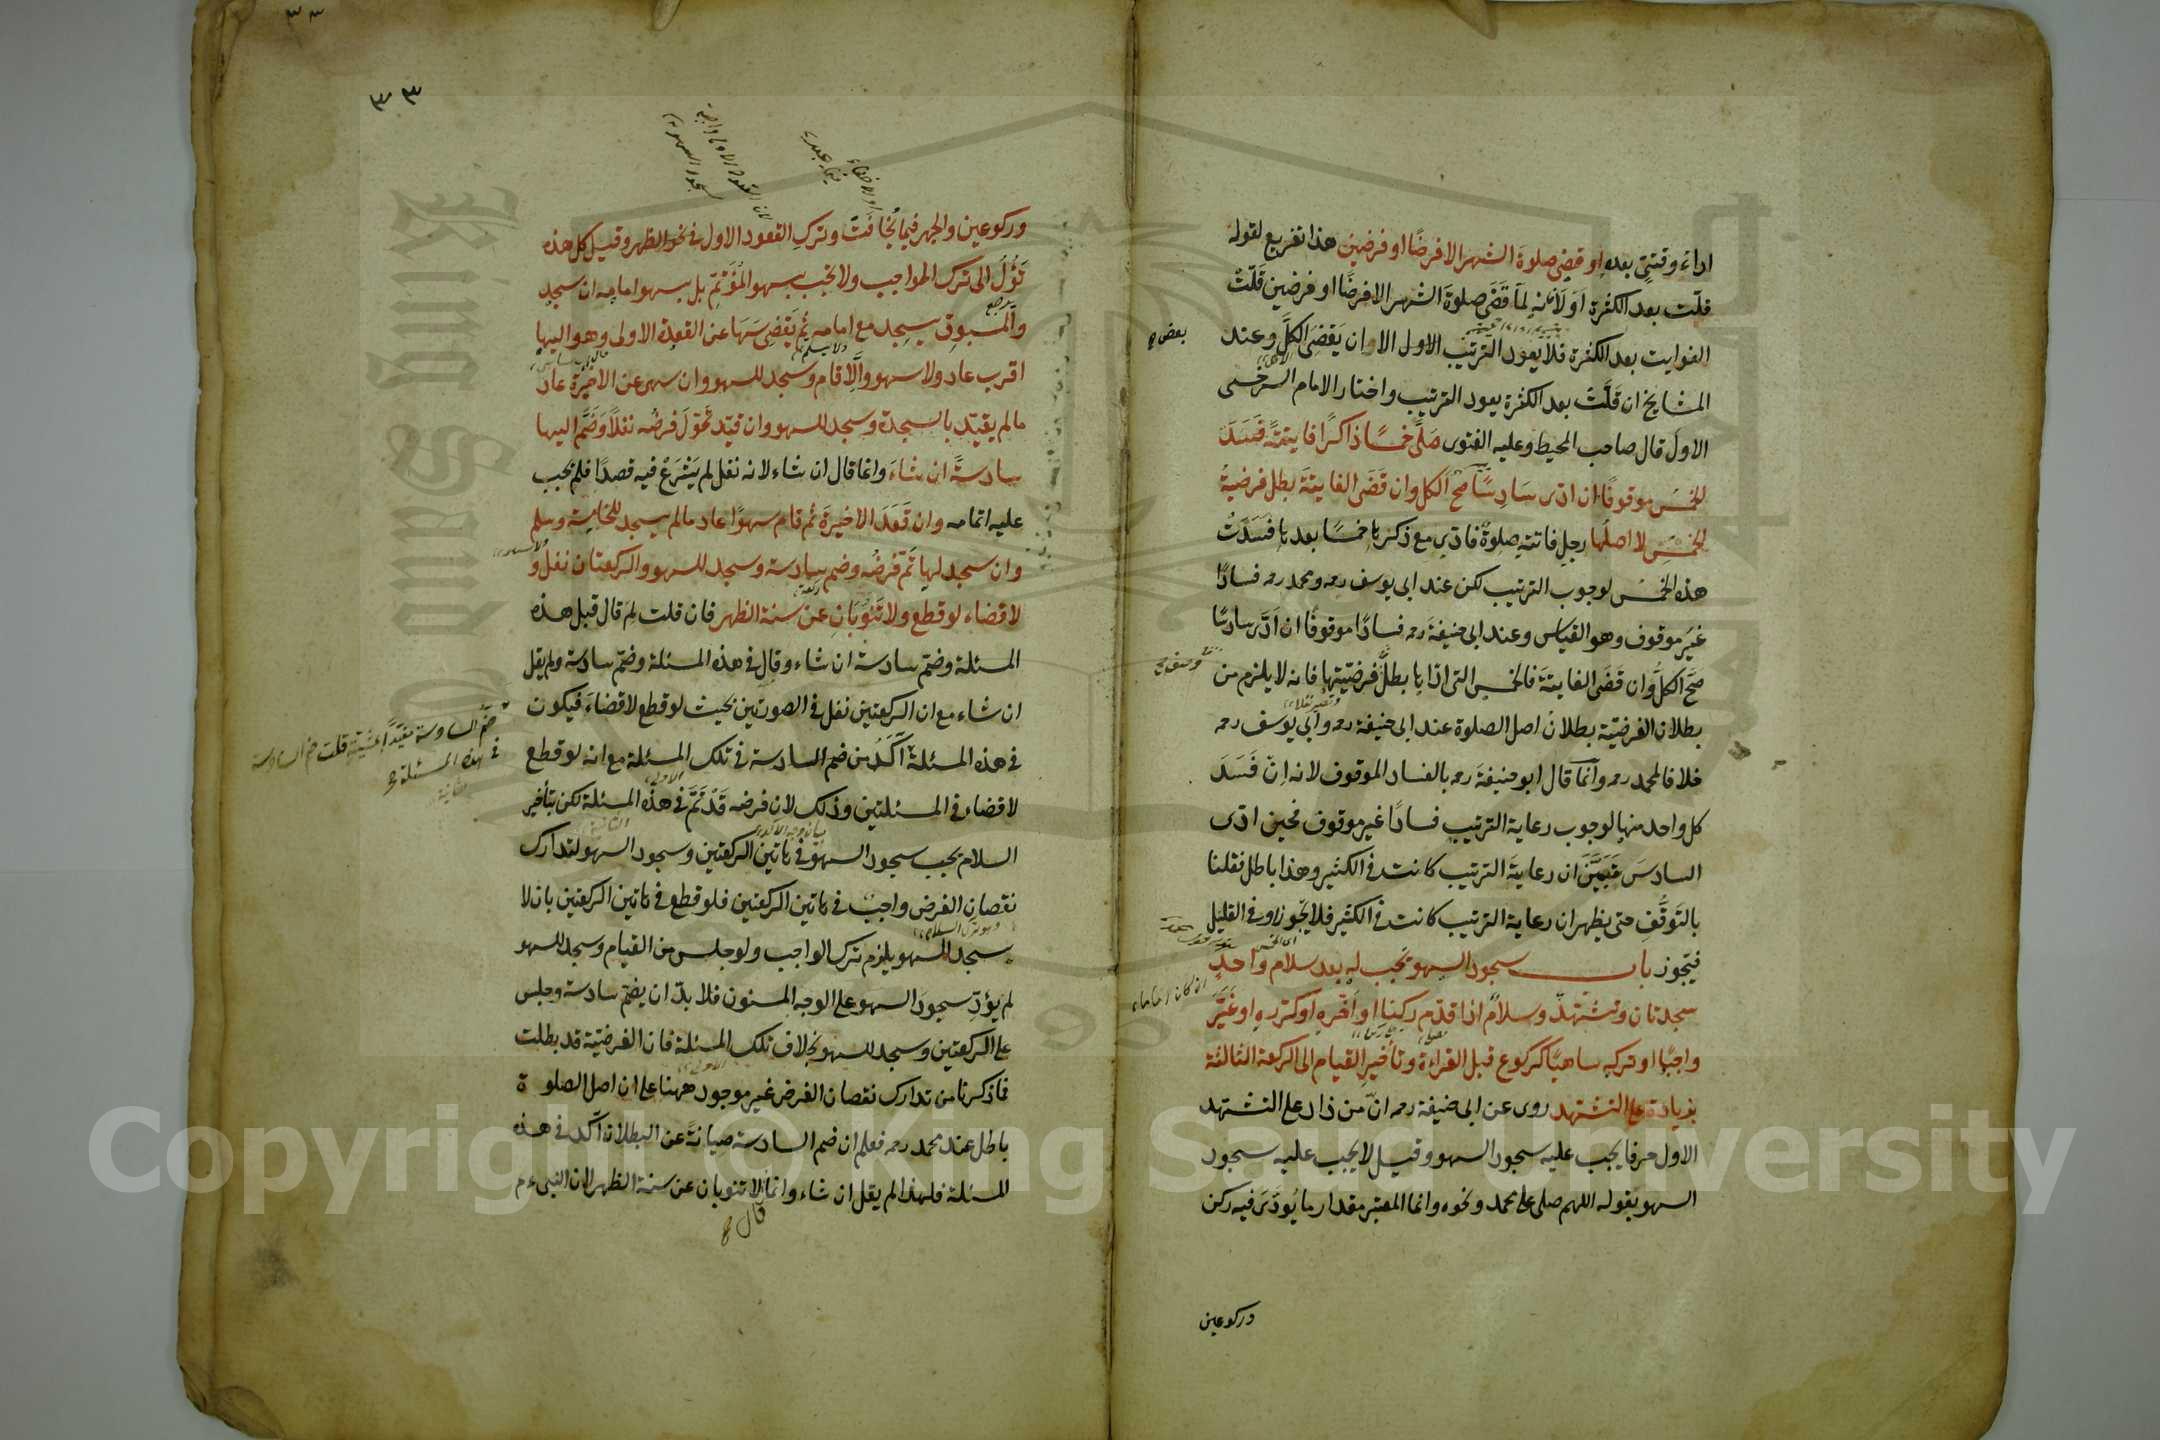 اداء وقتي بعده او قضى صلوة الشهر الا فرضا او فرضين هذا تفريع لقوله
قلت بعد الكثرة اولا فانه لما قضى صلوة الشهر الا فرضا او فرضين قلت
الفوايت بعد الكثرة فلا يعود الترتيب الاول الا ان يقضى الكل وعند
بعض
المشايخ ان قلت بعد الكثرة يعود الترتيب واختار الامام السرخسى
الاول قال صاحب المحيط وعليه الفتوى صلى خمسا ذاكرا فايتة فسد
الخمس موقوفا ان ادى سادسا صح الكل وان قضى الفايتة بطل فرضية
الخمس لا اصلها رجل فاتته صلوة فادى مع ذكرها خمسا بعدها فسدت
هذه الخمس لوجوب الترتيب لكن عند ابى يوسف رحمه ومحمد رحمه فسادا
غير موقوف وهو القياس وعند ابى حنيفة رحمه فسادا موقوفا ان ادى سادسا
صح الكل وان قضى الفايتة فالخمس التى اداها بطل فرضيتها فانه لا يلزم من
بطلان الفرضية بطلان اصل الصلوة عند ابى حنيفة رحمه وابى يوسف رحمه
خلافا لمحمد رحمه وانما قال ابو حنيفة رحمه بالفساد الموقوف لانه ان فسد
كل واحد منها لوجوب رعاية الترتيب فسادا غير موقوف فحين ادى
السادس تبين ان رعاية الترتيب كانت فى الكثير وهذا باطل فقلنا
بالتوقف حتى يظهر ان رعاية الترتيب كانت فى الكثير فلا يجوز او فى القليل
فيتجوز باب سجود السهو يجب له بعد سلام واحد
سجدتان وتشهد وسلام اذا قدم ركنا او اخره او كرره او غير
واجبا او تركه ساهيا كركوع قبل القراءة وتأخير القيام الى الركعة الثالثة
بزيادة على التشهد روى عن ابى حنيفة رحمه ان من زاد على التشهد
الاول حرفا يجب عليه سجود السهو وقيل لا يجب عليه سجود
السهو بقوله اللهم صلى على محمد ونحوه وانما المعتبر مقدار ما يودى فيه ركن
وركوعين
٣٣
وركوعين والجهر فيما يخافت وترك القعود الاول فى نحو الظهر وقيل كل هذه
تؤل الى ترك الواجب ولا يجب بسهو المؤتم بل بسهو امامه ان سجد
والمسبوق يسجد مع امامه ثم يقضى سها عن القعدة الاولى وهو اليها
اقرب عاد ولا سهو والا قام وسجد للسهو وان سهى عن الاخيرة عاد
ما لم يقيد بالسجدة وسجد للسهو وان قيد تحول فرضه نفلا وضم اليها
سادسة ان شاء وانما قال ان شاء لانه نفل لم يشرع فيه قصدا فلم يجب
عليه اتمامه وان قعد الاخيرة ثم قام سهوا عاد ما لم يسجد للخامسة وسلم
وان سجد لها تم فرضه وضم سادسة وسجد للسهو والركعتان نفل و
لا قضاء لو قطع ولا تنوبان عن سنة الظهر فان قلت لم قال قبل هذه
المسئلة وضم سادسة ان شاء وقال فى هذه المسئلة وضم سادسة ولم يقل
ان شاء مع ان الركعتين نفل فى الصورتين بحيث لو قطع لا قضاء فيكون
ضم السادسة مقيدا بمشيته قلت ضم السادسة
فى هذه المسئلة
فى هذه المسئلة آكد من ضم السادسة فى تلك المسئلة مع انه لو قطع
لا قضاء فى المسئلتين وذلك لان فرضه قد تم فى هذه المسئلة لكن بتأخير
السلام يجب سجود السهو فى هاتين الركعتين وسجود السهو لتدارك
نقصان الفرض واجب فى هاتين الركعتين فلو قطع فى هاتين الركعتين بان لا
يسجد للسهو يلزم ترك الواجب ولو جلس من القيام وسجد للسهو
لم يؤد سجود السهو على الوجه المسنون فلا بد ان يضم سادسة وجلس
على الركعتين وسجد للسهو بخلاف تلك المسئلة فان الفرضية قد بطلت
فما ذكرنا من تدارك نقصان الفرض غير موجود ههنا على ان اصل الصلوة
باطل عند محمد رحمه فعلم ان ضم السادسة صيانة عن البطلان آكد فى هذه
المسئلة فلهذا لم يقل ان شاء وانما لا تنوبان عن سنة الظهر لان النبى ءم
قال